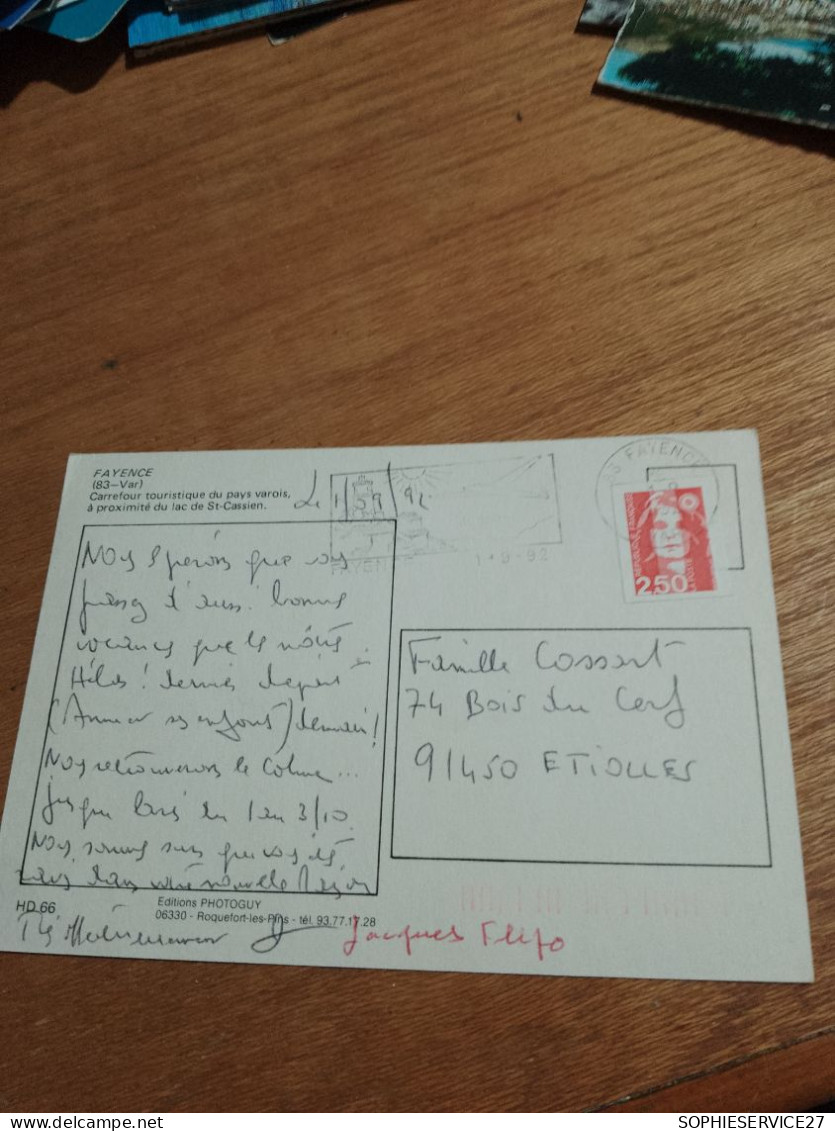 FAYENCE
(83-Var)
Carrefour touristique du pays varois,
à proximité du lac de St-Cassien.
Le 1 / 92
83 FAYENCE
FAYEN
1-9-92
REPUBLIQUE FRANÇAISE
2,50
LA POSTE
Nous espérons que vous
passez d'aussi bonnes
vacances que les nôtres.
Hélas! dernier départ
(Anne et ses enfants) demain!
Nous retrouverons le calme...
jusque Paris du 1 au 3/10.
Nous sommes sûrs que vous êtes
dans votre nouvelle
Famille Cossart
74 Bois du Cerf
91450 ETIOLLES
HD 66
Editions PHOTOGUY
06330 - Roquefort-les-Pins - tél. 93.77.17.28
Très affectueusement
Jacques Flipo
SOPHIESERVICE27